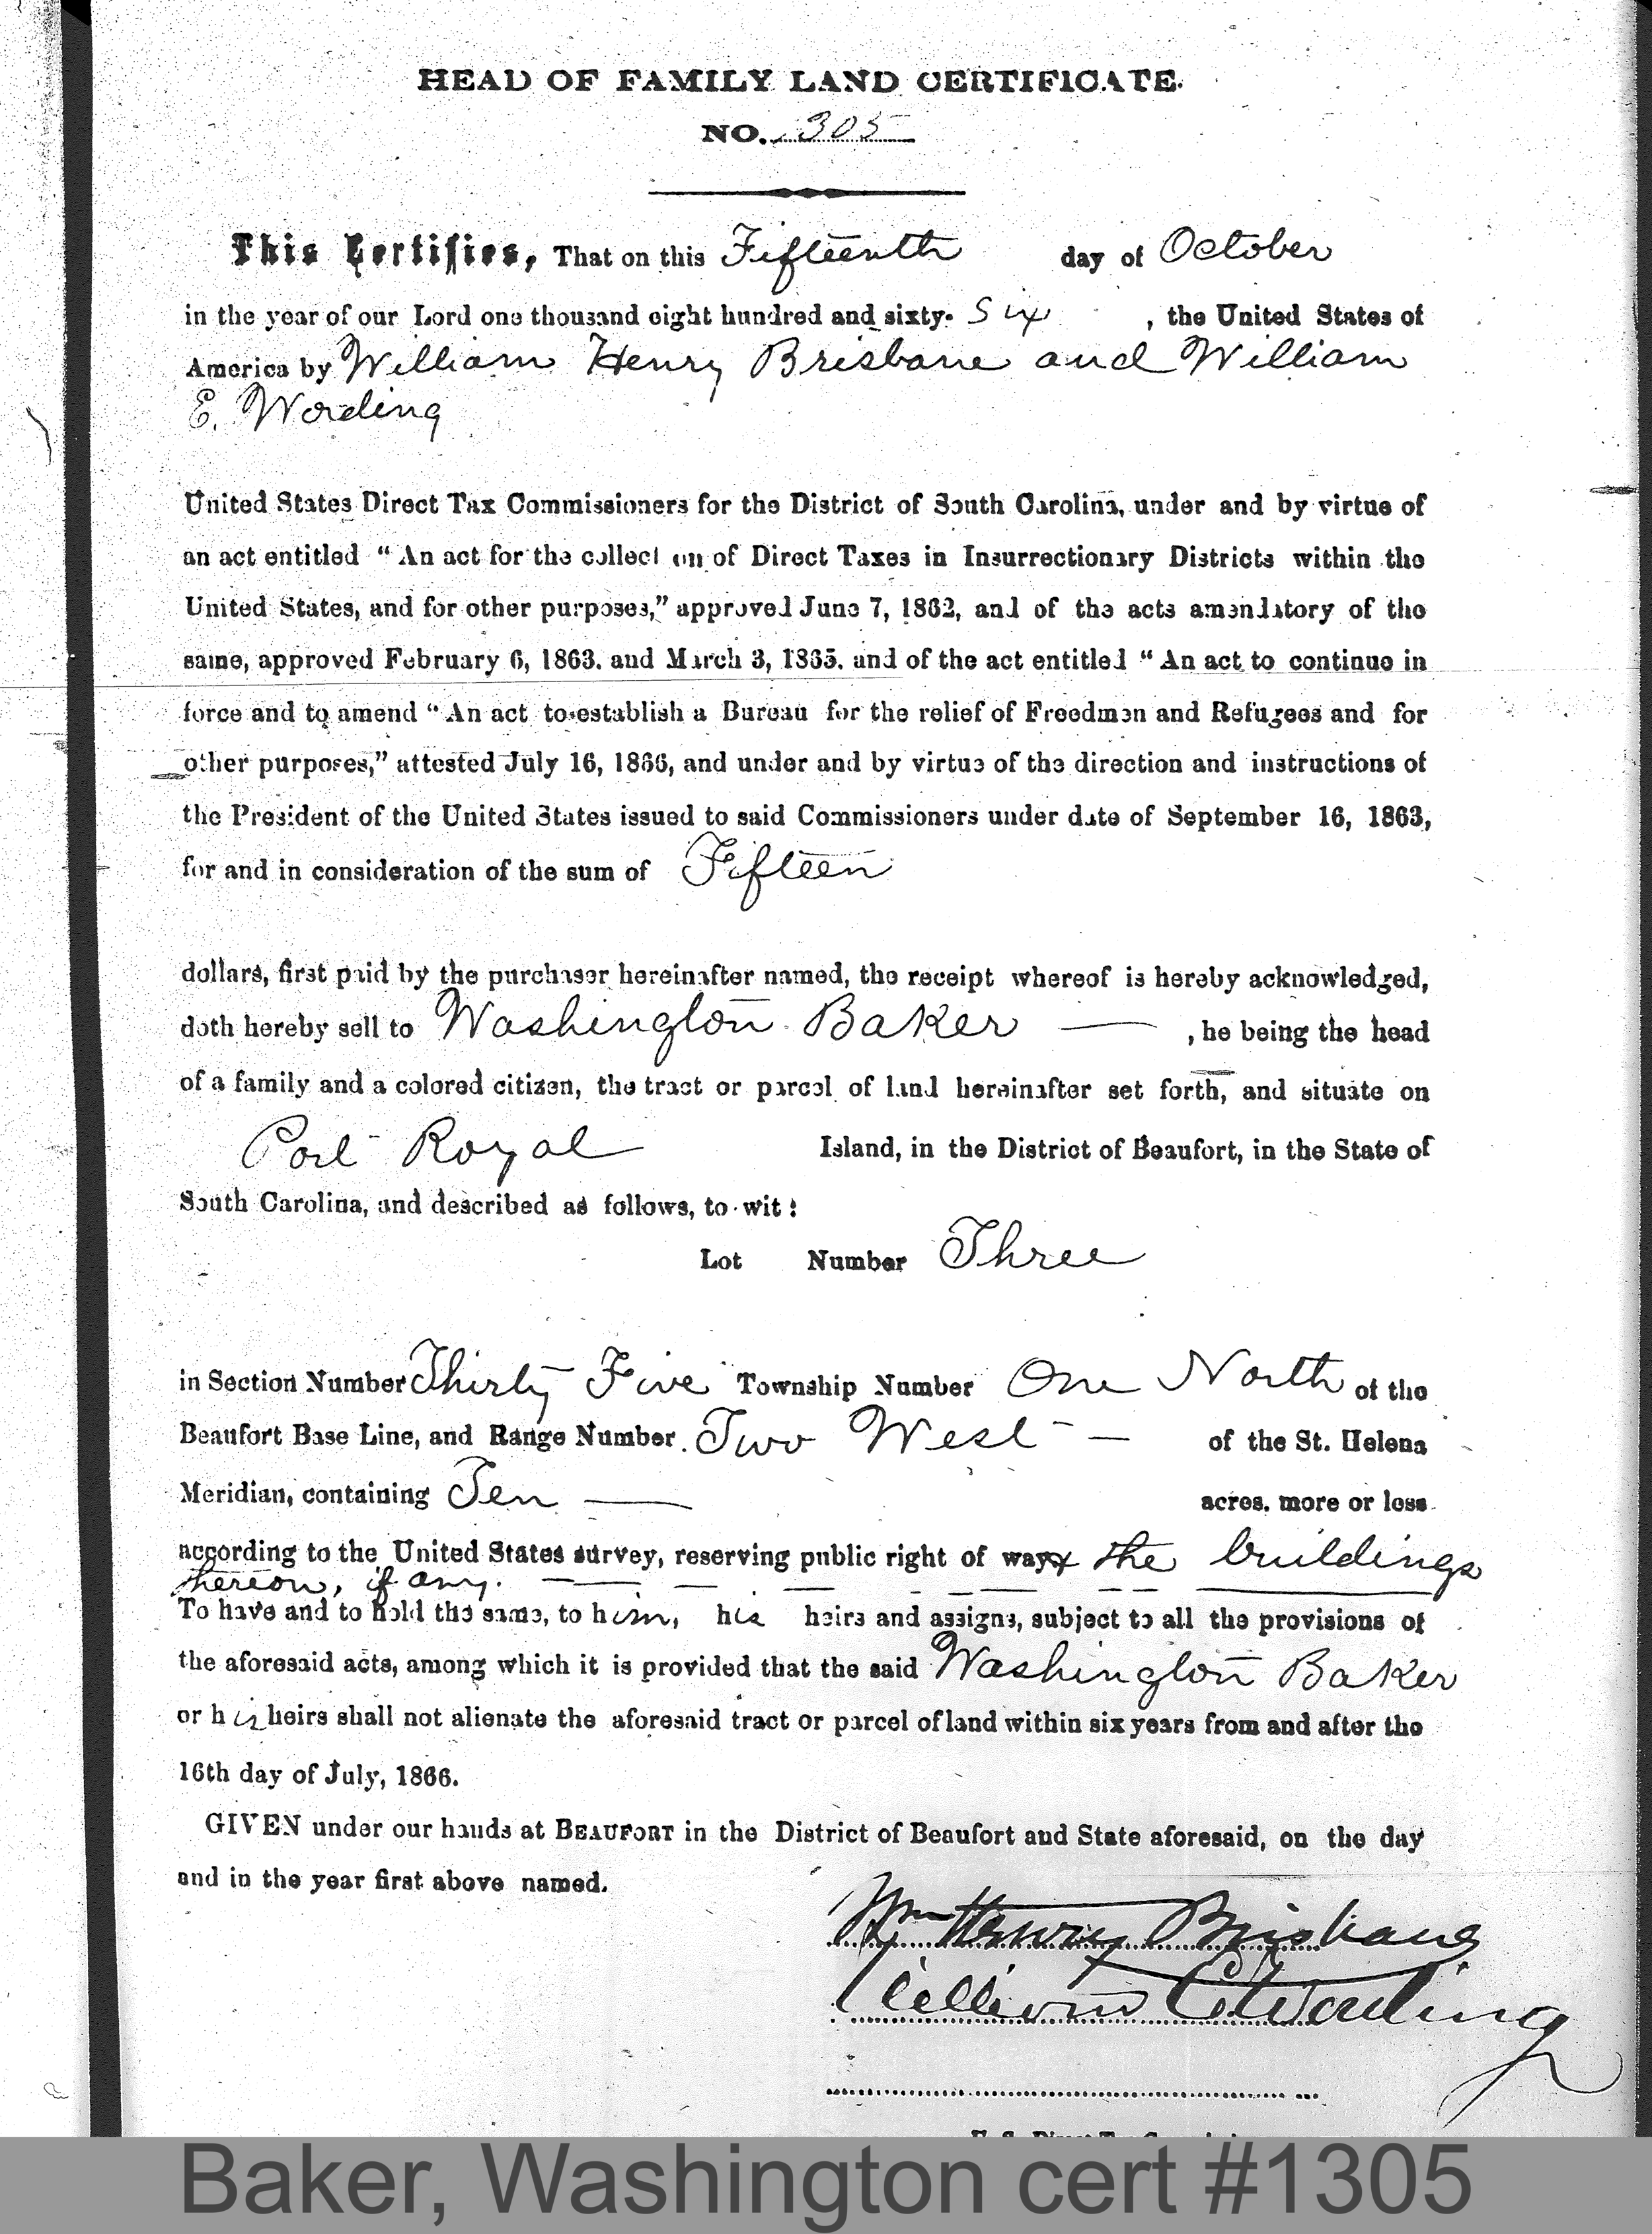 HEAD OF FAMILY LAND CERTIFICATE.
NO. 1305
This Certifies, That on this Fifteenth day of October
in the year of our Lord one thousand eight hundred and sixty- Six , the United States of
America by William Henry Brisbane and William
E. Wording
United States Direct Tax Commissioners for the District of South Carolina, under and by virtue of
an act entitled “ An act for the collection of Direct Taxes in Insurrectionary Districts within the
United States, and for other purposes,” approved June 7, 1862, and of the acts amendatory of the
same, approved February 6, 1863. and March 3, 1865. and of the act entitled “ An act to continue in
force and to amend “ An act to establish a Bureau for the relief of Freedmen and Refugees and for
other purposes,” attested July 16, 1866, and under and by virtue of the direction and instructions of
the President of the United States issued to said Commissioners under date of September 16, 1863,
for and in consideration of the sum of Fifteen
dollars, first paid by the purchaser hereinafter named, the receipt whereof is hereby acknowledged,
doth hereby sell to Washington Baker — , he being the head
of a family and a colored citizen, the tract or parcel of land hereinafter set forth, and situate on
Port Royal Island, in the District of Beaufort, in the State of
South Carolina, and described as follows, to-wit:
Lot Number Three
in Section Number Thirty Five Township Number One North of the
Beaufort Base Line, and Range Number Two West — of the St. Helena
Meridian, containing Ten — acres. more or less
according to the United States survey, reserving public right of way the buildings
thereon, if any.
To have and to hold the same, to him, his heirs and assigns, subject to all the provisions of
the aforesaid acts, among which it is provided that the said Washington Baker
or his heirs shall not alienate the aforesaid tract or parcel of land within six years from and after the
16th day of July, 1866.
GIVEN under our hands at BEAUFORT in the District of Beaufort and State aforesaid, on the day
and in the year first above named.
Wm Henry Brisbane
William E. Wording
Baker, Washington cert #1305